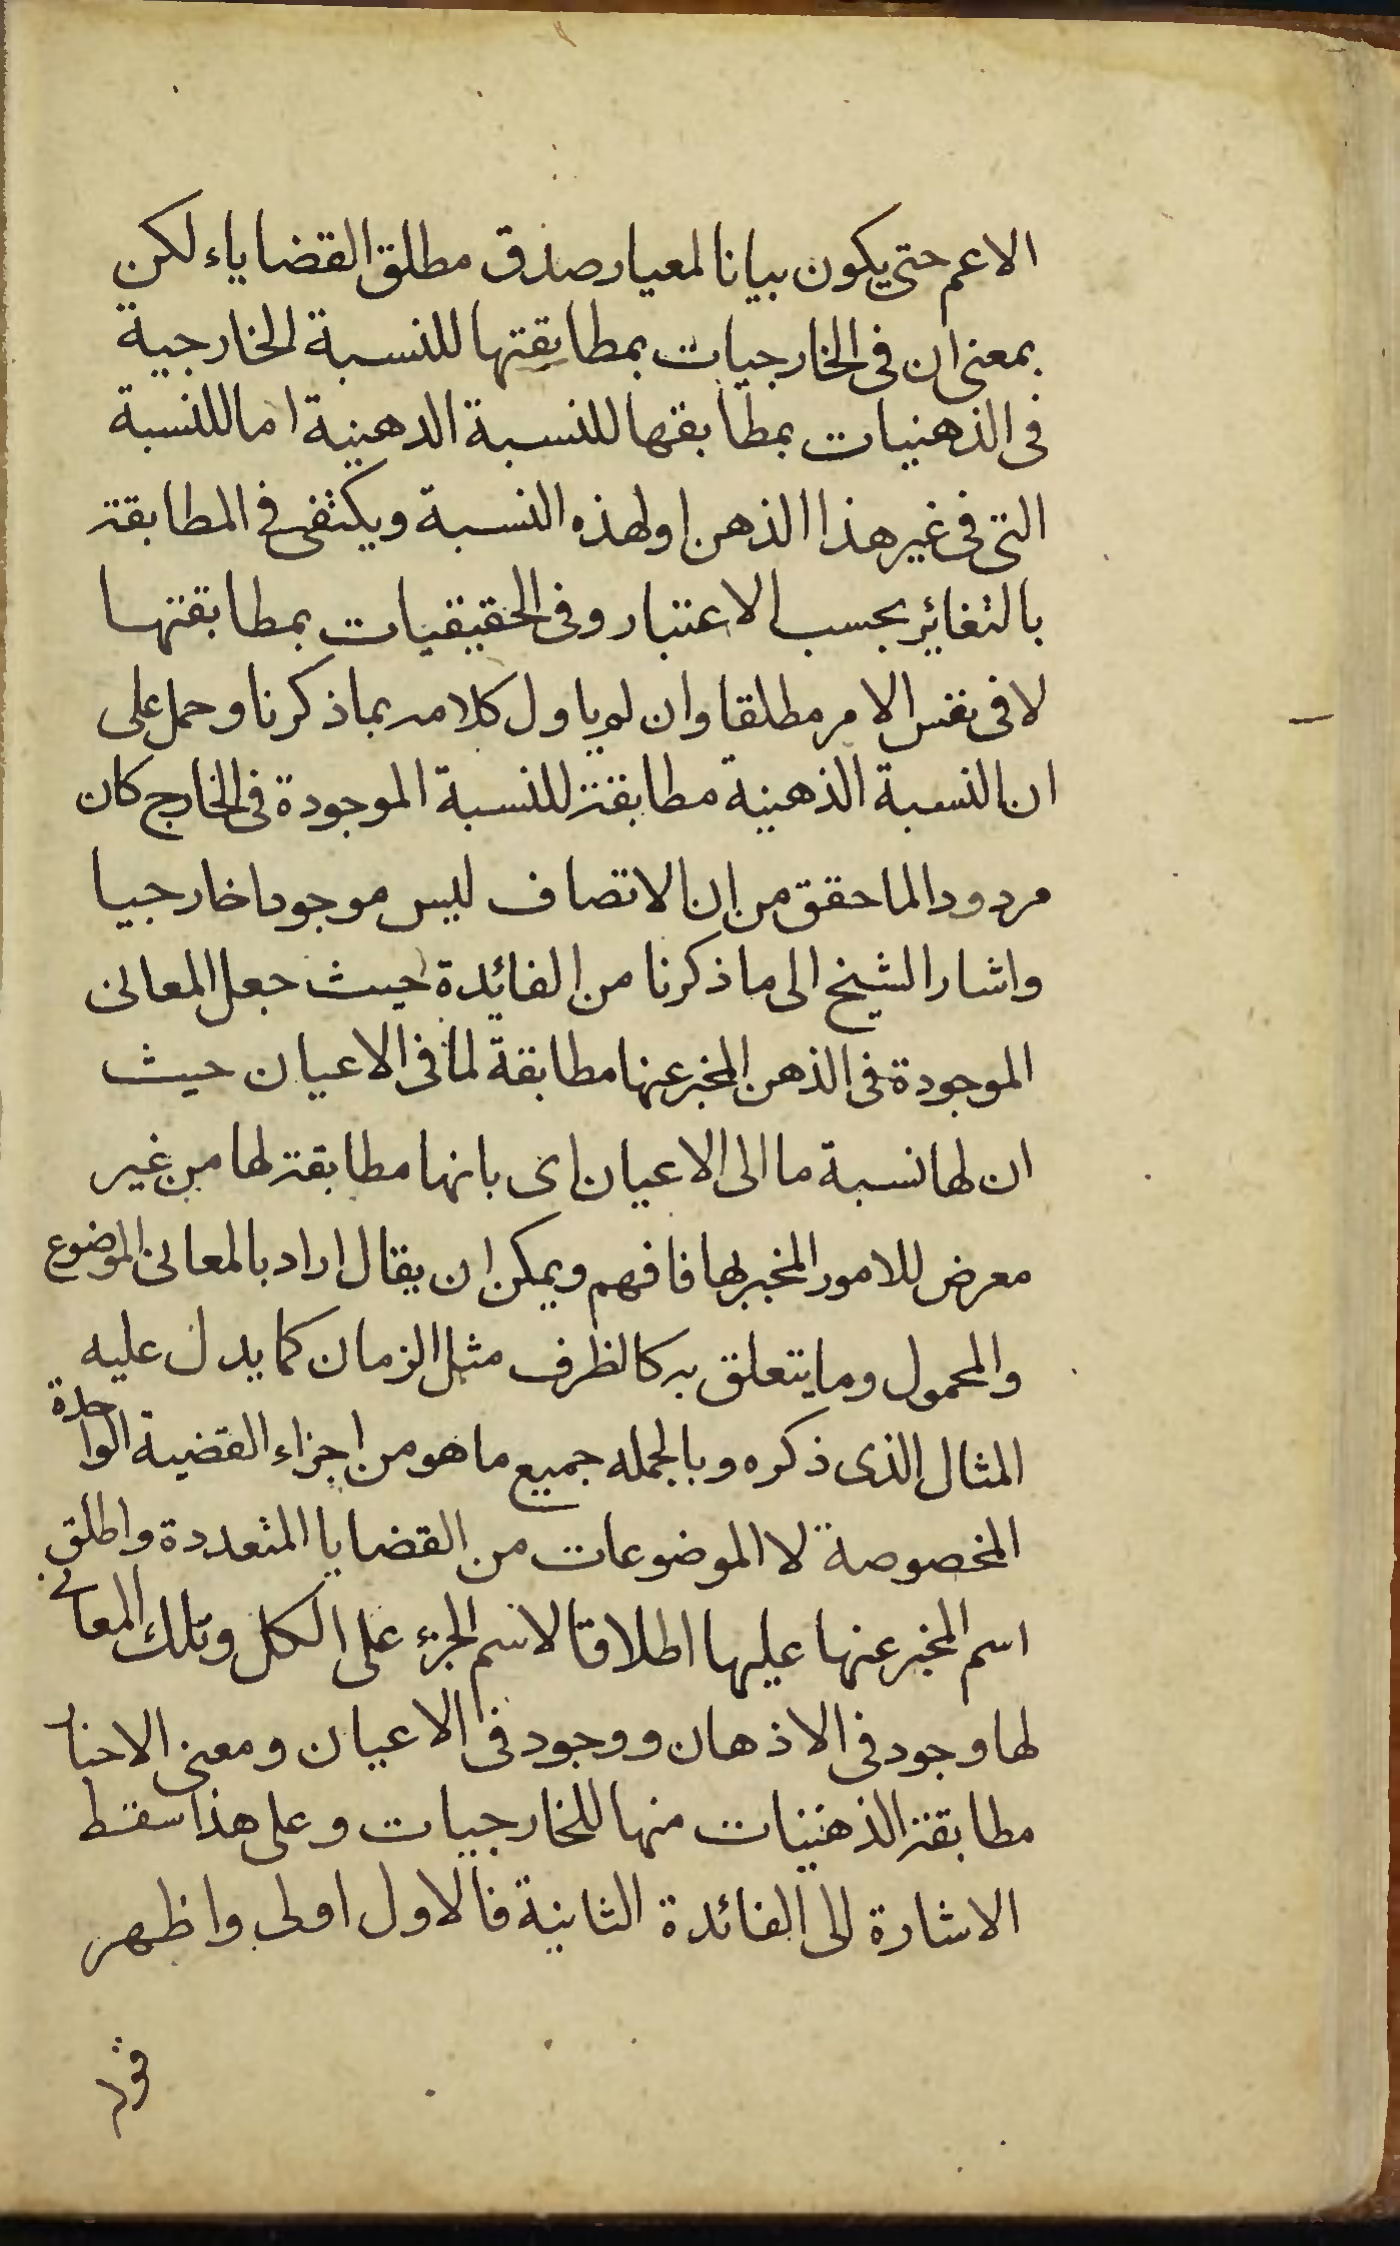 الاعم حتى يكون بيانا لمعيار صدق مطلق القضاياء لكن
بمعنى ان فى الخارجيات بمطابقتها للنسبة الخارجية
فى الذهنيات بمطابقتها للنسبة الذهنية اما للنسبة
التى فى غير هذا الذهن او لهذه النسبة ويكتفى فى المطابقة
بالتغائر بحسب الاعتبار وفى الحقيقيات بمطابقتها
لا فى نفس الامر مطلقا وان لم ياول كلامه بما ذكرنا وحمل على
ان النسبة الذهنية مطابقة للنسبة الموجودة فى الخارج كان
مردودا لما حقق من ان الاتصاف ليس موجودا خارجيا
واشار الشيخ الى ما ذكرنا من الفائدة حيث جعل المعانى
الموجودة فى الذهن المخبر عنها مطابقة لما فى الاعيان حيث
ان لها نسبة ما الى الاعيان اى بانها مطابقة لها من غير
معرض للامور المخبر بها فافهم ويمكن ان يقال اراد بالمعانى الموضوع
والمحمول وما يتعلق به كالظرف مثل الزمان كما يدل عليه
المثال الذى ذكره وبالجمله جميع ما هو من اجزاء القضية الواحدة
المخصوصة لا الموضوعات من القضايا المتعددة واطلق
اسم المخبر عنها عليها اطلاقا لاسم الجزء على الكل وتلك المعانى
لها وجود فى الاذهان ووجود فى الاعيان ومعنى الاخبار
مطابقة الذهنيات منها للخارجيات وعلى هذا سقط
الاشارة الى الفائدة الثانية فالاول اولى واظهر
قوله